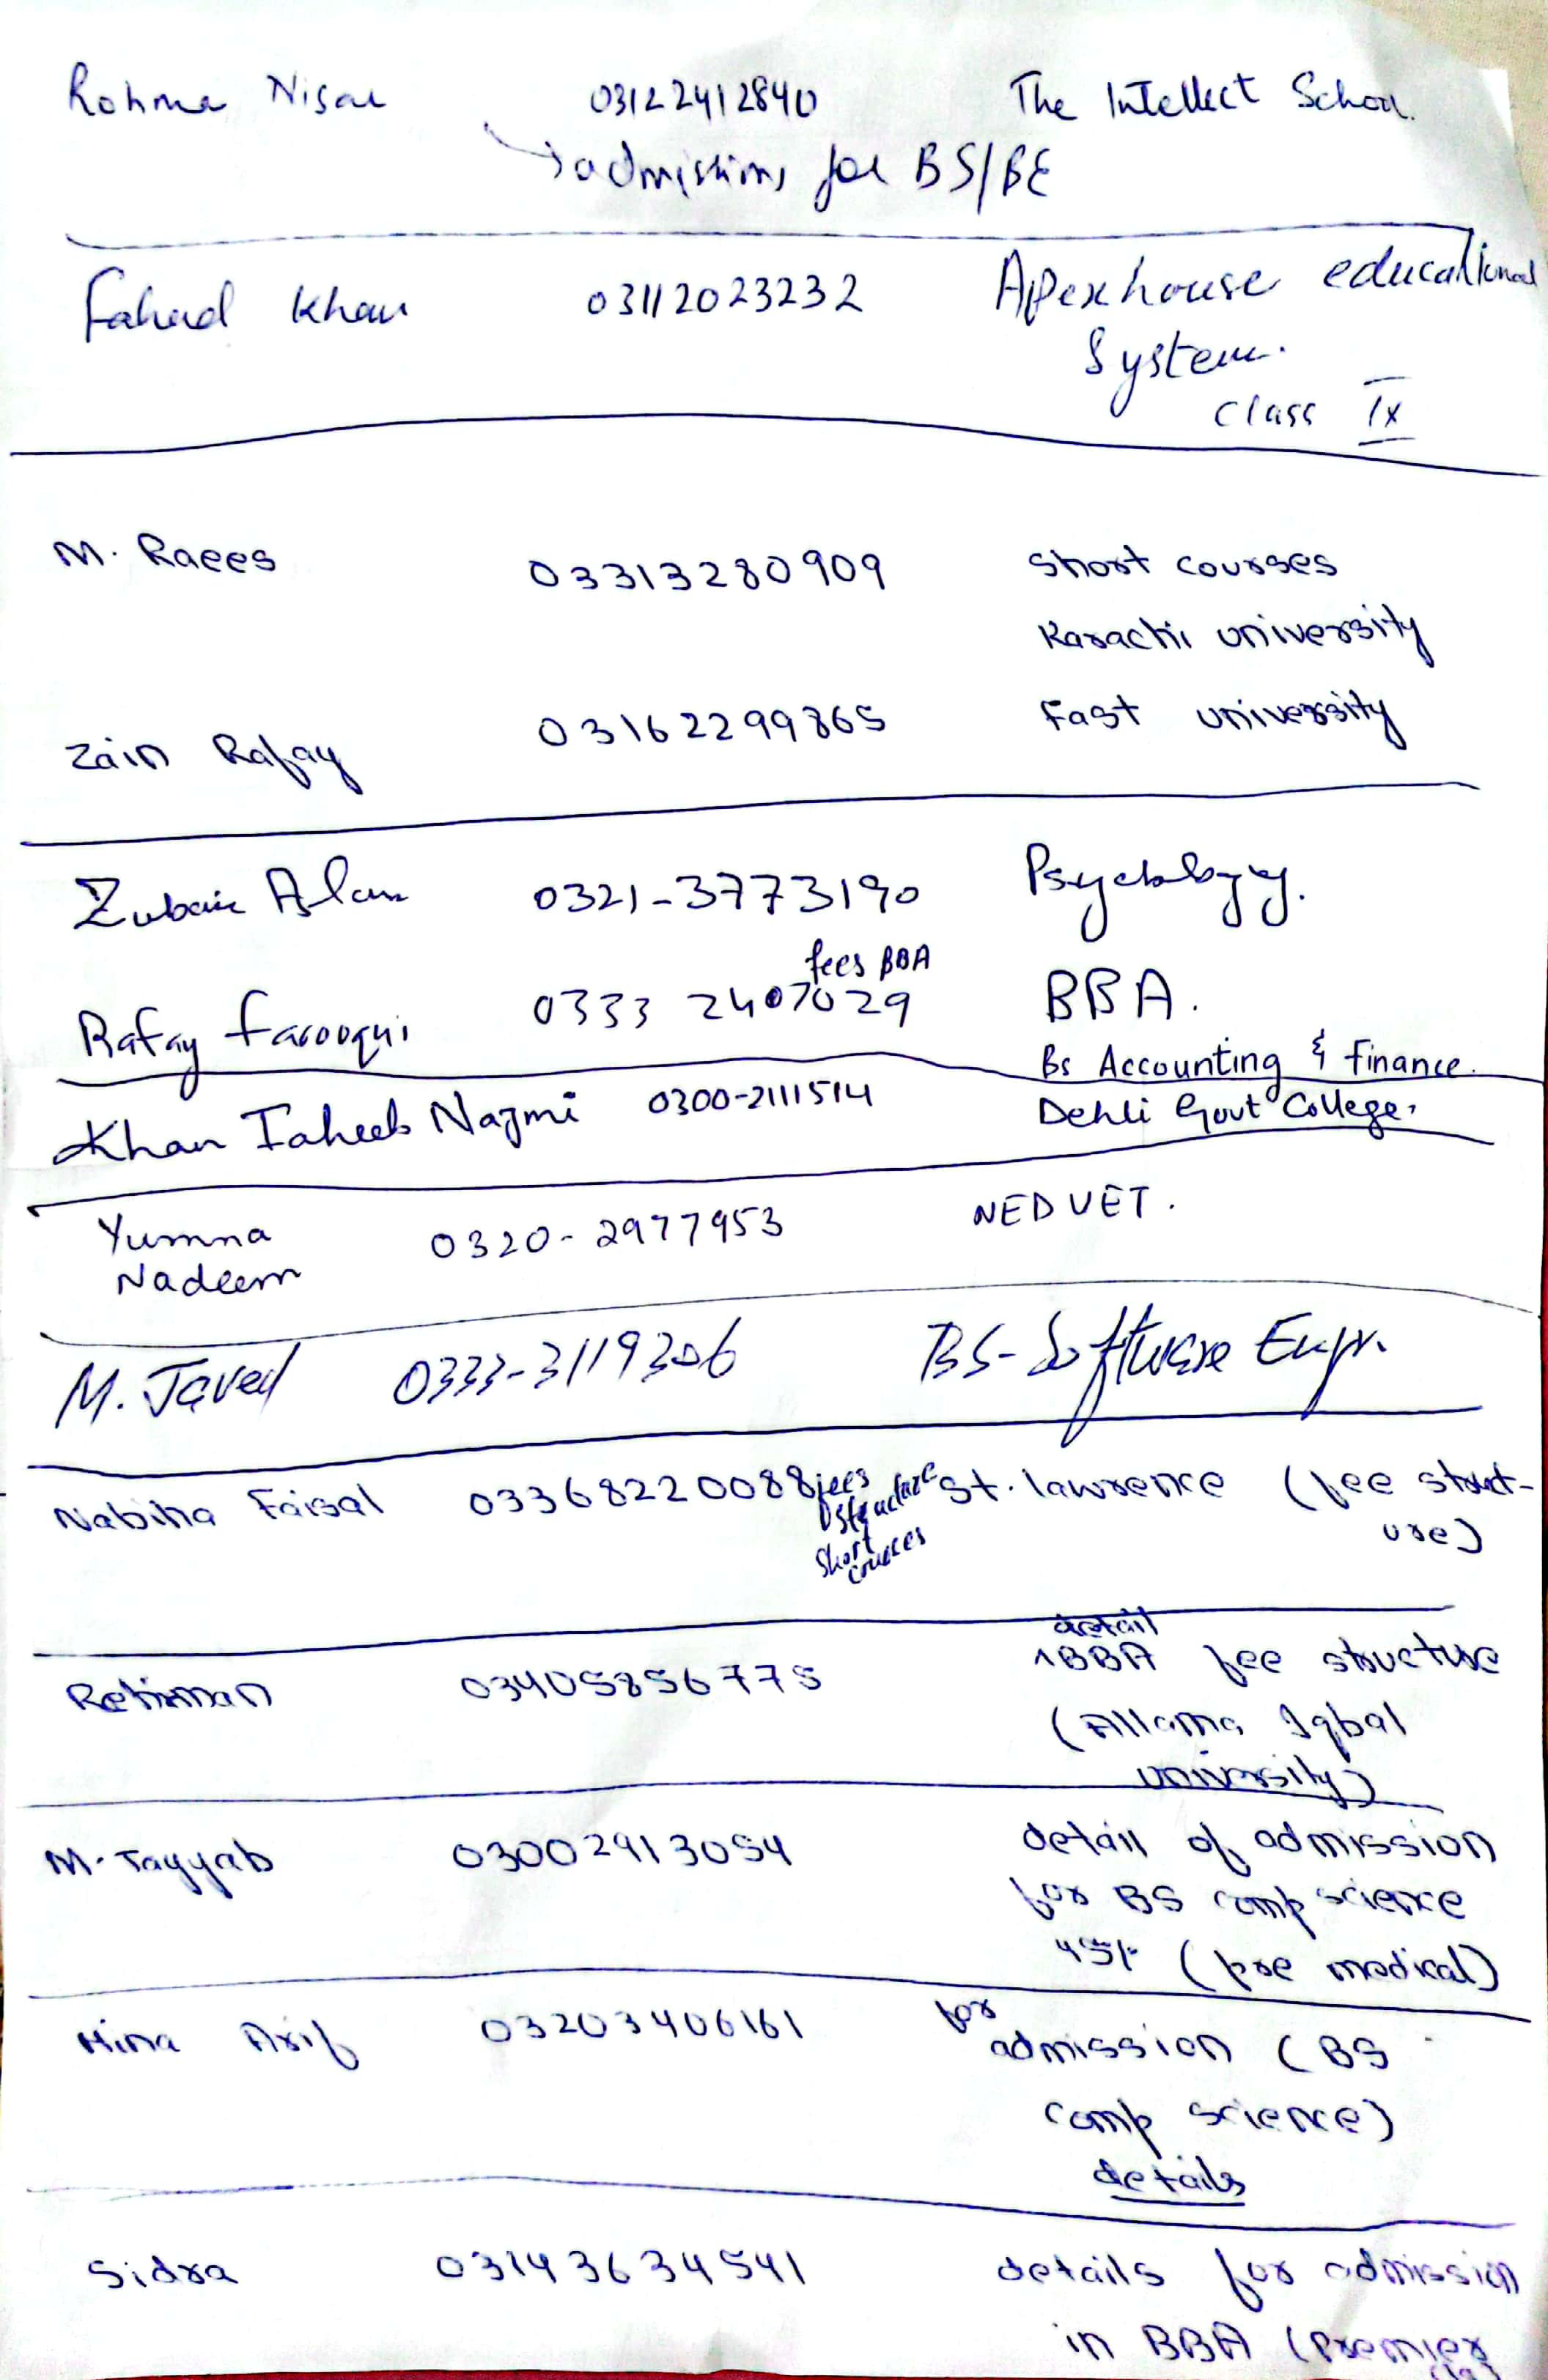 Rohma Nisar 03122412840 The Intellect School.
admissions for BS/BE
Fahad Khan 03112023232 Apexhouse educational
System.
class IX
M. Raees 03313280909 short courses
Karachi university
Zain Rafay 03162299865 Fast university
Zubair Alam 0321-3773190 Psychology.
fees BBA
Rafay Farooqui 0333 2407029 BBA.
Bs Accounting & finance.
Khan Nazmi 0300-2111514 Dehli Govt College.
Yumna 0320-2977953 NED UET.
Nadeem
M. Javed 0333-3119306 BS-Software Engr.
Nabiha Faisal 03368220088 fees St. lawrence (fee struct-
structure ure)
short
cources
detail
Rehman 03405856775 ^BBA fee structure
(Allama Iqbal
university)
M. Tayyab 03002913054 detail of admission
for BS comp science
(pre medical)
Hina Arif 03203406161 for
admission (BS
comp science)
details
Sidra 03143634541 details for admission
in BBA (Premier